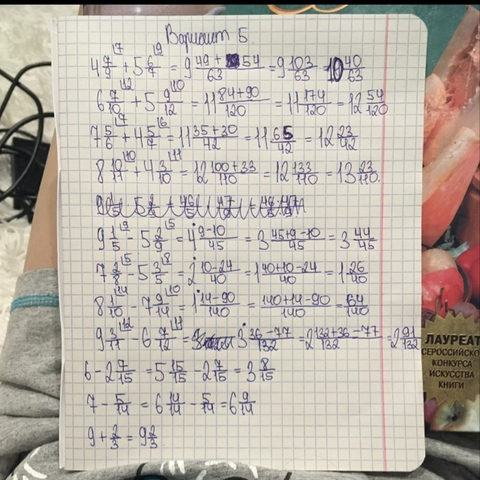 Вариант Б.
4 7/9 + 5 6/7 = 9 49+54/63 = 9 103/63 = 10 40/63
6 7/10 + 5 9/12 = 11 84+90/120 = 11 174/120 = 12 54/120
7 5/6 + 4 5/7 = 11 35+30/42 = 11 65/42 = 12 23/42
8 10/11 + 4 3/10 = 12 100+33/110 = 12 133/110 = 13 23/110.
9 1/5 - 5 2/9 = 4 9-10/45 = 3 45+9-10/45 = 3 44/45
7 2/8 - 5 3/5 = 2 10-24/40 = 1 40+10-24/40 = 1 26/40
8 1/10 - 7 9/14 = 1 14-90/140 = 140+14-90/140 = 64/140
9 3/11 - 6 7/12 = 3 36-77/132 = 2 132+36-77/132 = 2 91/132
6 - 2 7/15 = 5 15/15 - 2 7/15 = 3 8/15
7 - 5/14 = 6 14/14 - 5/14 = 6 9/14
9 + 2/3 = 9 2/3
ЛАУРЕАТ
СЕРОССИЙСКО
КОНКУРСА
ИСКУССТВА
КНИГИ